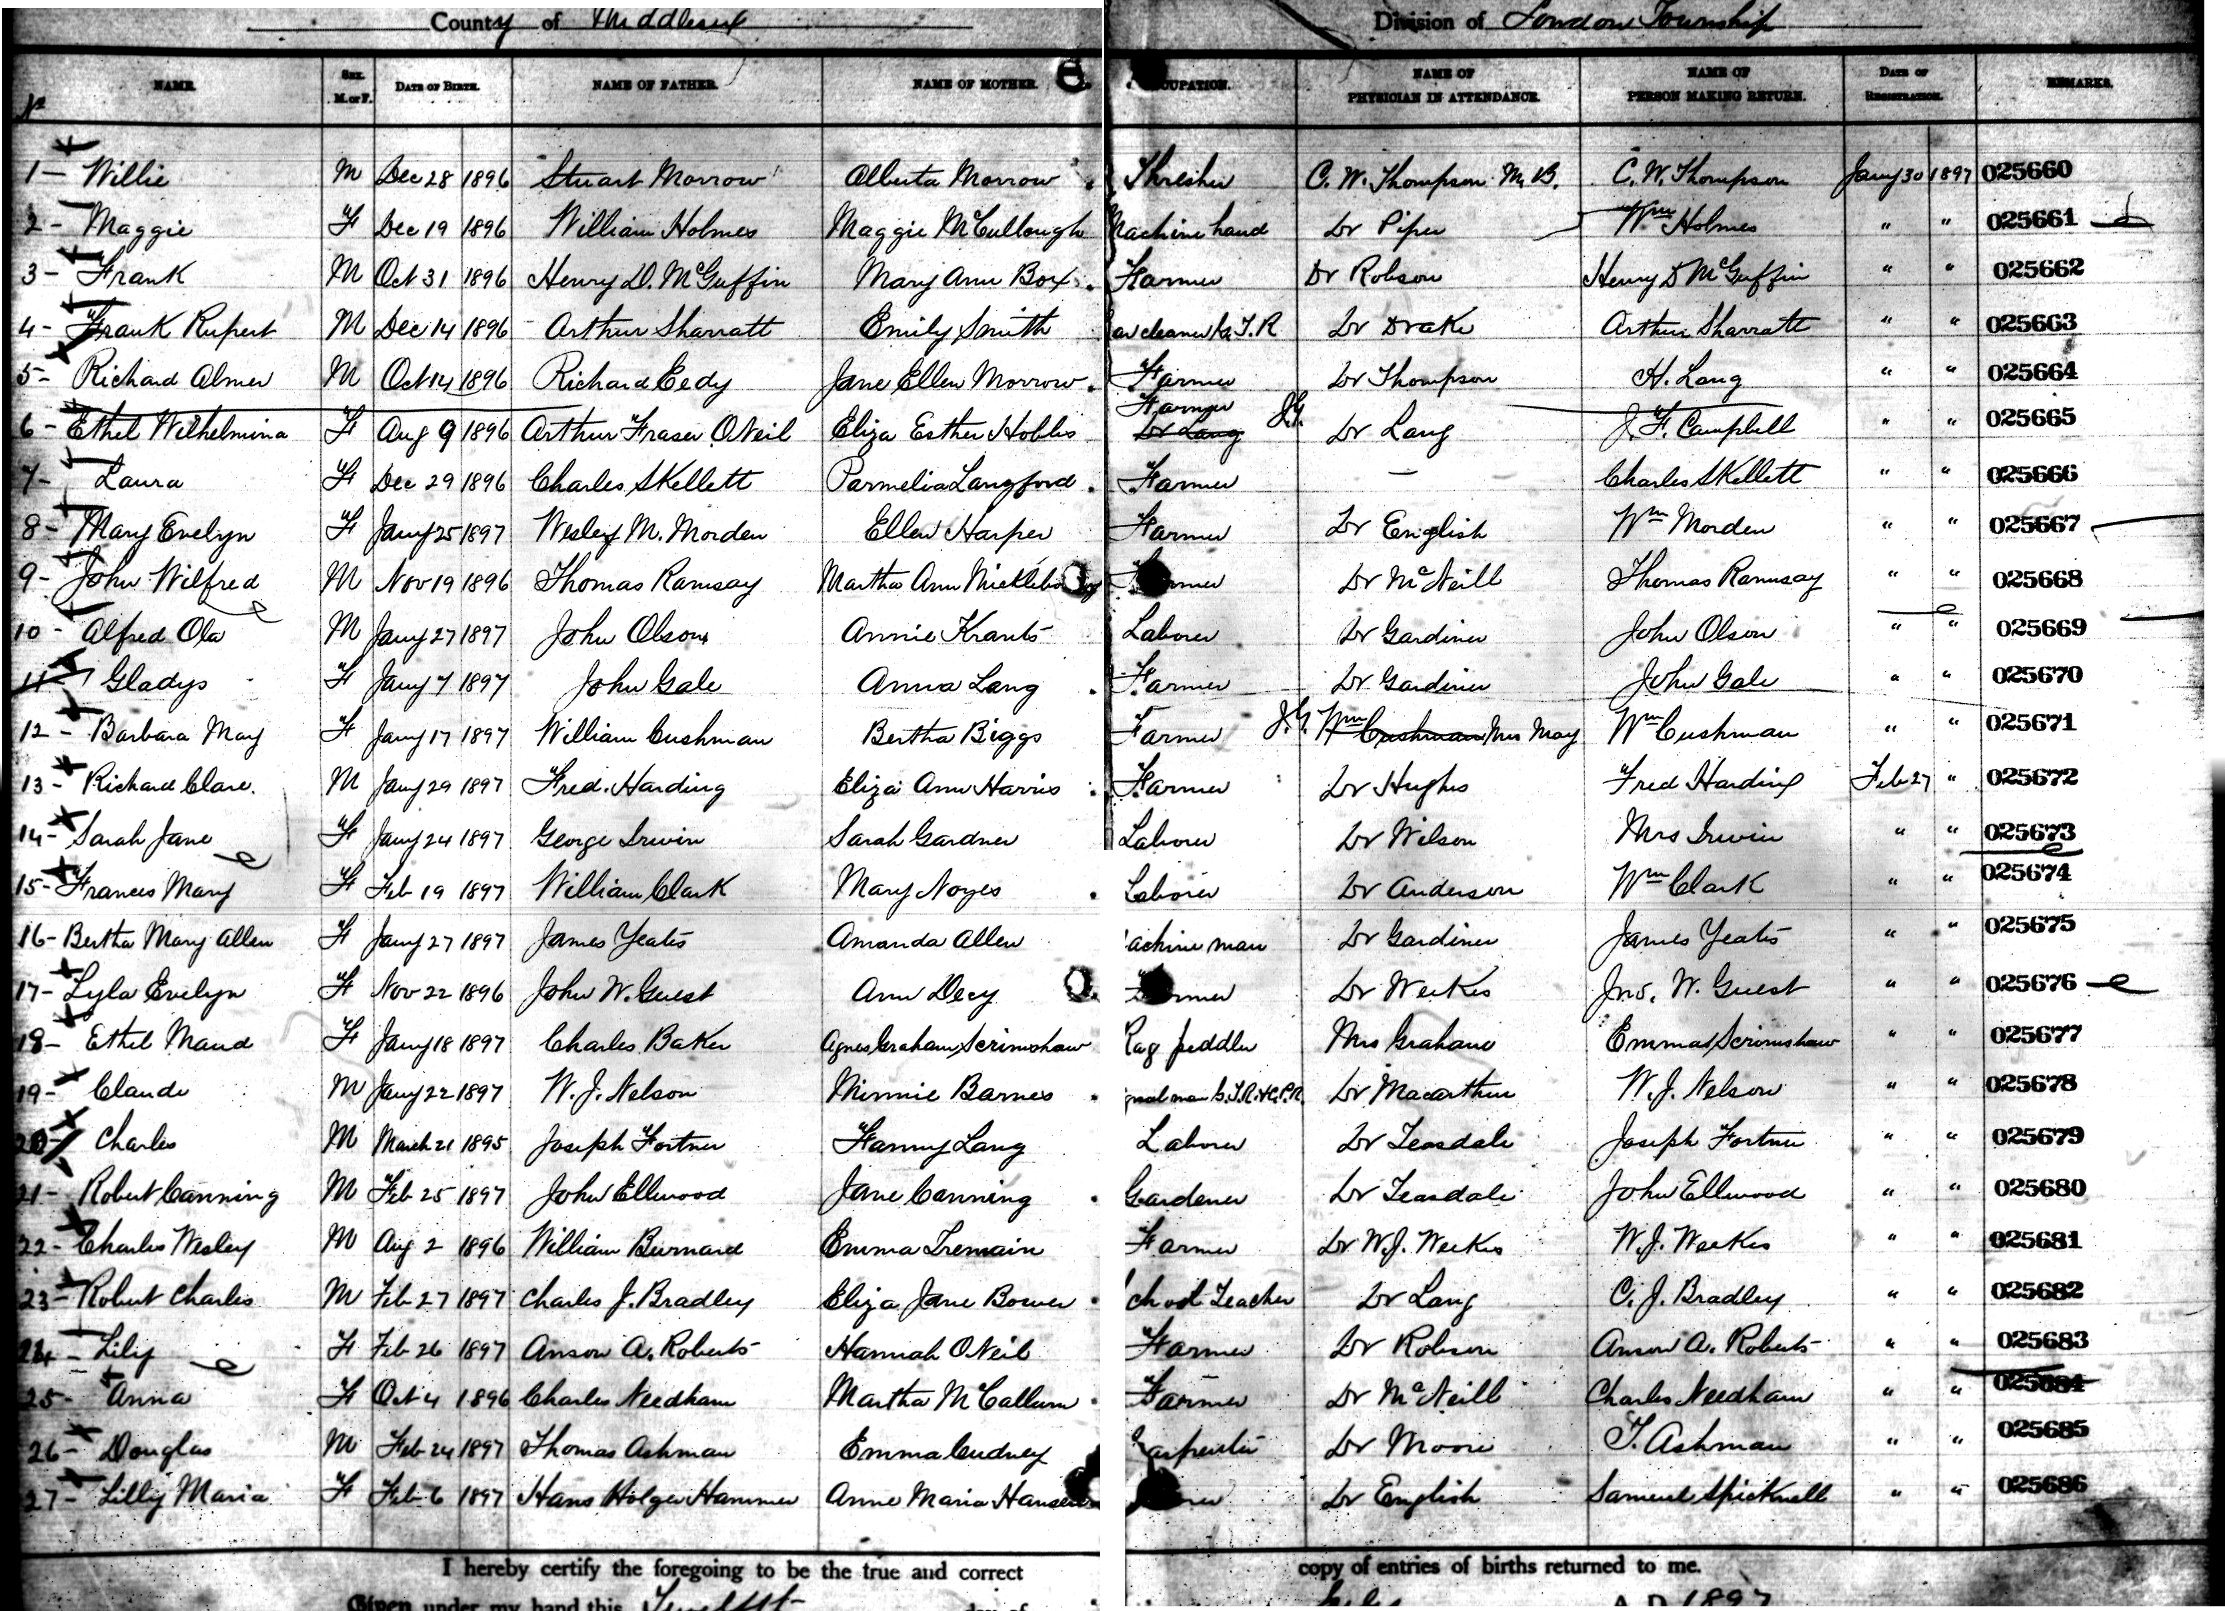 County of Middlesex Division of London Township
NAME. SEX. M. or F. DATE OF BIRTH. NAME OF FATHER. NAME OF MOTHER. CUPATION. NAME OF PHYSICIAN IN ATTENDANCE. NAME OF PERSON MAKING RETURN. DATE OF REGISTRATION. REMARKS.
1 - Willie M Dec 28 1896 Stuart Morrow Alberta Morrow Thresher C. W. Thompson M. B. C. W. Thompson Jany 30 1897 025660
2 - Maggie F Dec 19 1896 William Holmes Maggie McCullough Machine hand Dr Piper Wm Holmes " " 025661
3 - Frank M Oct 31 1896 Henry D. McGuffin Mary Ann Box Farmer Dr Robson Henry D McGuffin " " 025662
4 - Frank Rupert M Dec 14 1896 Arthur Sharratt Emily Smith ar cleaner G. T. R Dr Drake Arthur Sharratt " " 025663
5 - Richard Almer M Oct 14 1896 Richard Eedy Jane Ellen Morrow Farmer Dr Thompson H. Lang " " 025664
6 - Ethel Wilhelmina F Aug 9 1896 Arthur Fraser ONeil Eliza Esther Hobbs Farmer Dr Lang J.G. Dr Lang J. F. Campbell " " 025665
7 - Laura F Dec 29 1896 Charles Skellett Parmelia Langford Farmer — Charles Skellett " " 025666
8 - Mary Evelyn F Jany 25 1897 Wesley M. Morden Ellen Harper Farmer Dr English Wm Morden " " 025667
9 - John Wilfred M Nov 19 1896 Thomas Ramsay Martha Ann Farmer Dr McNeill Thomas Ramsay " " 025668
10 - Alfred Ola M Jany 27 1897 John Olson Annie Krants Laborer Dr Gardiner John Olson " " 025669
11 - Gladys F Jany 7 1897 John Gale Anna Lang Farmer Dr Gardiner John Gale " " 025670
12 - Barbara May F Jany 17 1897 William Cushman Bertha Biggs Farmer J.G. Wm Cushman Mrs May Wm Cushman " " 025671
13 - Richard Clare. M Jany 29 1897 Fred. Harding Eliza Ann Harris Farmer Dr Hughs Fred Harding Feb 27 " 025672
14 - Sarah Jane F Jany 24 1897 George Irwin Sarah Gardner Laborer Dr Wilson Mrs Irwin " " 025673
15 - Frances Mary F Feb 19 1897 William Clark Mary Noyes Laborer Dr Anderson Wm Clark " " 025674
16 - Bertha Mary Allen F Jany 27 1897 James Yeats Amanda Allen achine man Dr Gardiner James Yeats " " 025675
17 - Lyla Evelyn F Nov 22 1896 John W. Guest Ann Decy Farmer Dr Weekes Jno. W. Guest " " 025676
18 - Ethel Maud F Jany 18 1897 Charles Baker Agnes Graham Scrimshaw Rag peddler Mrs Graham Emma Scrimshaw " " 025677
19 - Claude M Jany 22 1897 W. J. Nelson Minnie Barnes gnal man G.T.R. & C.P.R. Dr Macarthur W. J. Nelson " " 025678
20 - Charles M March 21 1895 Joseph Fortner Fanny Lang Laborer Dr Teasdale Joseph Fortner " " 025679
21 - Robert Canning M Feb 25 1897 John Ellwood Jane Canning Gardener Dr Teasdale John Ellwood " " 025680
22 - Charles Wesley M Aug 2 1896 William Burnard Emma Tremain Farmer Dr W. J. Weekes W. J. Weekes " " 025681
23 - Robert Charles M Feb 27 1897 Charles J. Bradley Eliza Jane Bower chool Teacher Dr Lang C. J. Bradley " " 025682
24 - Lily F Feb 26 1897 Anson A. Roberts Hannah ONeil Farmer Dr Robson Anson A. Roberts " " 025683
25 - Anna F Oct 4 1896 Charles Needham Martha McCallum Farmer Dr McNeill Charles Needham " " 025684
26 - Douglas M Feb 24 1897 Thomas Ashman Emma Cudney Carpenter Dr Moore T. Ashman " " 025685
27 - Lilly Maria F Feb 6 1897 Hans Holger Hammer Anne Maria Hansen Dr English Samuel Spicknell " " 025686
I hereby certify the foregoing to be the true and correct copy of entries of births returned to me.
Given under my hand this day of A. D. 1897